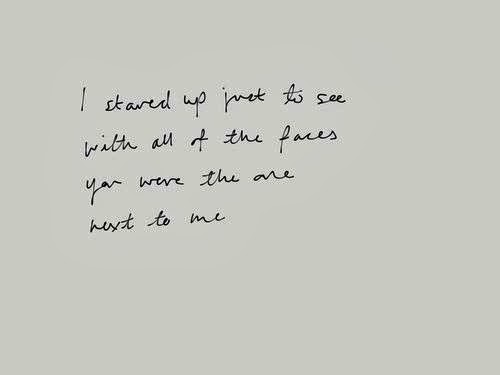 I stared up just to see
with all of the faces
you were the one
next to me